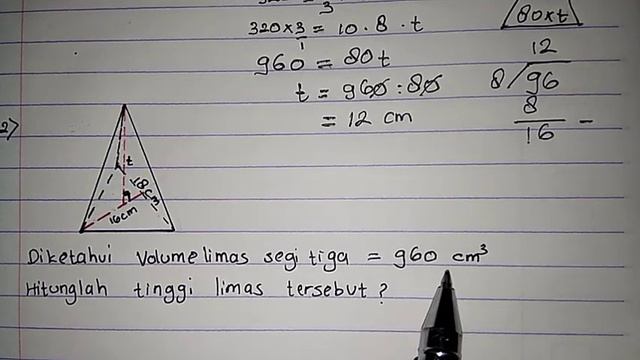 3
320 x 3 = 10 . 8 . t
1
960 = 80t
t = 960 : 80
= 12 cm
80xt
12
8 / 96
8
16 -
2)
t
18cm
16cm
Diketahui Volume limas segi tiga = 960 cm³
Hitunglah tinggi limas tersebut ?